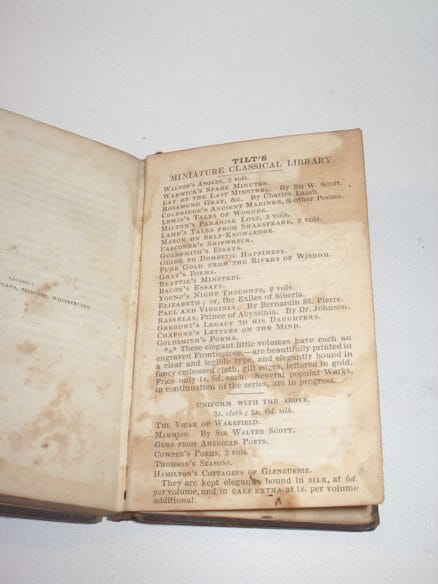 LONDON:
PRINTERS, WHITEFRIARS.
TILT'S
MINIATURE CLASSICAL LIBRARY.
WALTON'S ANGLER, 2 vols.
WARWICK'S SPARE MINUTES.
LAY OF THE LAST MINSTREL. By Sir W. Scott.
ROSAMUND GRAY, &c. By Charles Lamb.
COLERIDGE'S ANCIENT MARINER, & other Poems.
LEWIS'S TALES OF WONDER.
MILTON'S PARADISE LOST, 2 vols.
LAMB'S TALES FROM SHAKSPEARE, 2 vols.
MASON ON SELF-KNOWLEDGE.
FALCONER'S SHIPWRECK.
GOLDSMITH'S ESSAYS.
GUIDE TO DOMESTIC HAPPINESS.
PURE GOLD FROM THE RIVERS OF WISDOM.
GRAY'S POEMS.
BEATTIE'S MINSTREL.
BACON'S ESSAYS.
YOUNG'S NIGHT THOUGHTS, 2 vols.
ELIZABETH; or, the Exiles of Siberia.
PAUL AND VIRGINIA. By Bernardin St. Pierre.
RASSELAS, Prince of Abyssinia. By Dr. Johnson.
GREGORY'S LEGACY TO HIS DAUGHTERS.
CHAPONE'S LETTERS ON THE MIND.
GOLDSMITH'S POEMS.
*** These elegant little volumes have each an
engraved Frontispiece,—are beautifully printed in
a clear and legible type, and elegantly bound in
fancy embossed cloth, gilt edges, lettered in gold.
Price only 1s. 6d. each. Several popular Works,
in continuation of the series, are in progress.
UNIFORM WITH THE ABOVE,
2s. cloth; 2s. 6d. silk.
THE VICAR OF WAKEFIELD.
MARMION. By SIR WALTER SCOTT.
GEMS FROM AMERICAN POETS.
COWPER'S POEMS, 2 vols.
THOMSON'S SEASONS.
HAMILTON'S COTTAGERS OF GLENBURNIE.
They are kept elegantly bound in SILK, at 6d.
per volume, and in CALF EXTRA at 1s. per volume
additional.